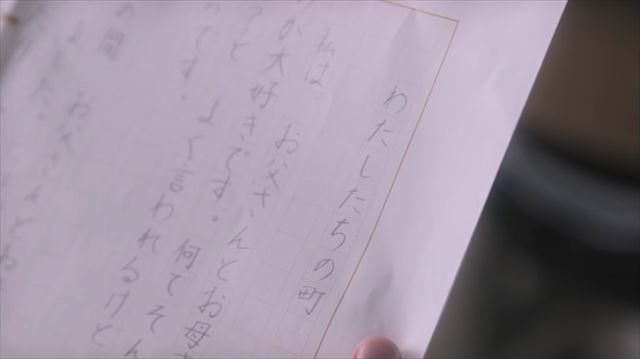 わたしたちの町
私は、お父さんとお母
が大好きです。何でそん
？と、よく言われるけど
のです。
の間、お父さんと
ました。